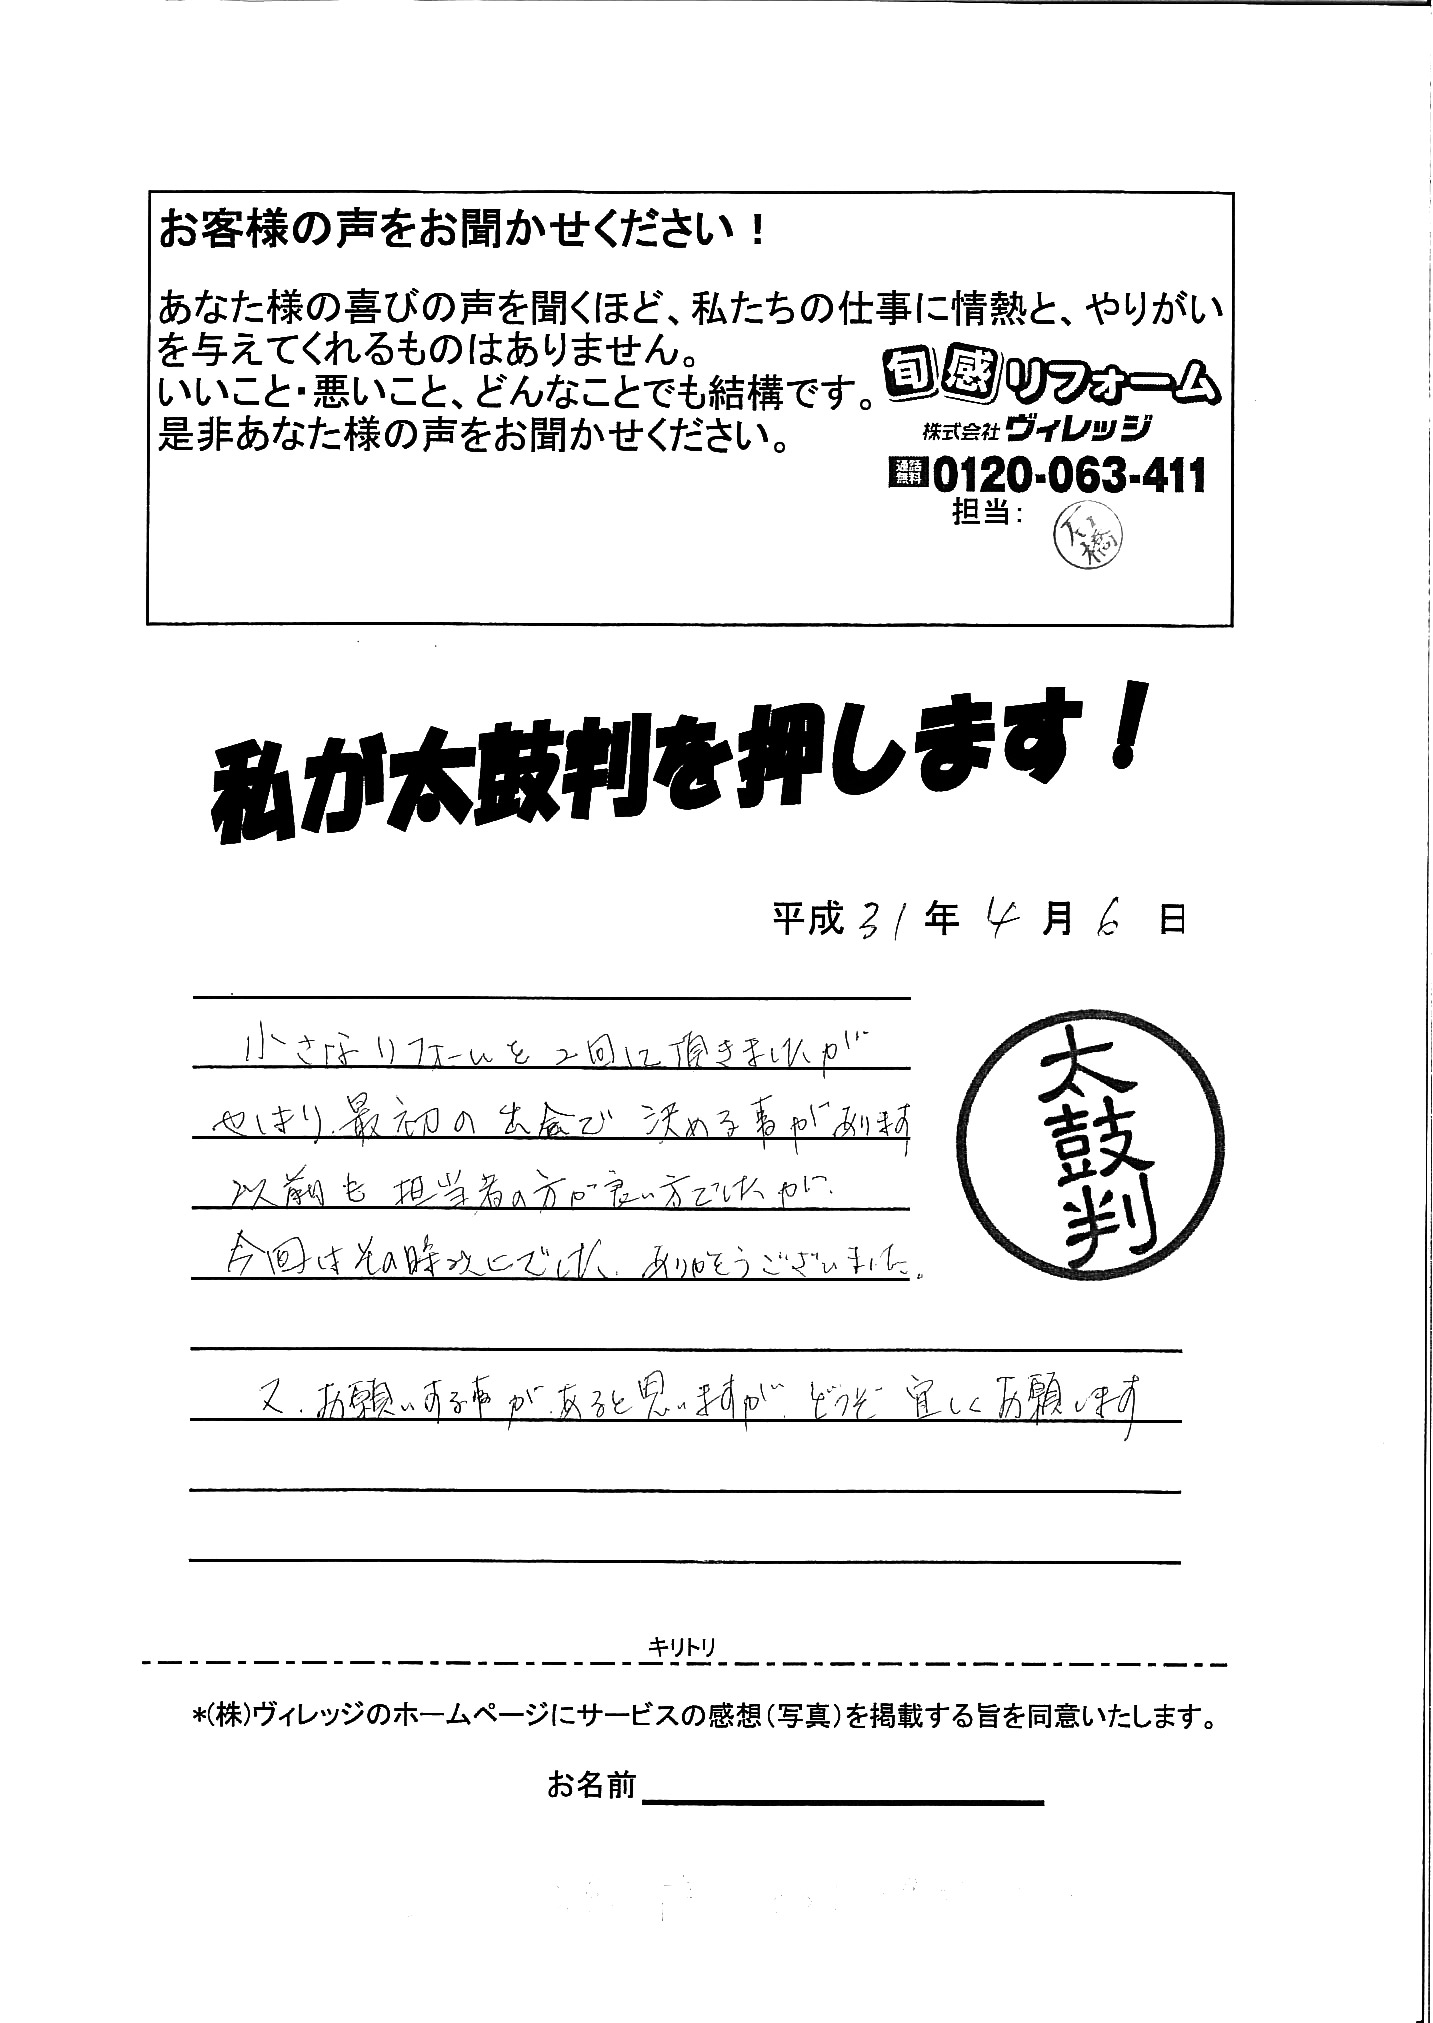 お客様の声をお聞かせください！
あなた様の喜びの声を聞くほど、私たちの仕事に情熱と、やりがい
を与えてくれるものはありません。
いいこと・悪いこと、どんなことでも結構です。
是非あなた様の声をお聞かせください。
旬感リフォーム
株式会社ヴィレッジ
通話無料 0120-063-411
担当：
石橋
私が太鼓判を押します！
平成31年4月6日
小さなリフォームを2回して頂きましたが
やはり、最初の出会で決める事があります
以前も担当者の方が良い方でしたが、
今回はその時次にでした、ありがとうございました。
太鼓判
又、お願いする事があると思いますが、どうぞ宜しくお願います
キリトリ
*(株)ヴィレッジのホームページにサービスの感想（写真）を掲載する旨を同意いたします。
お名前